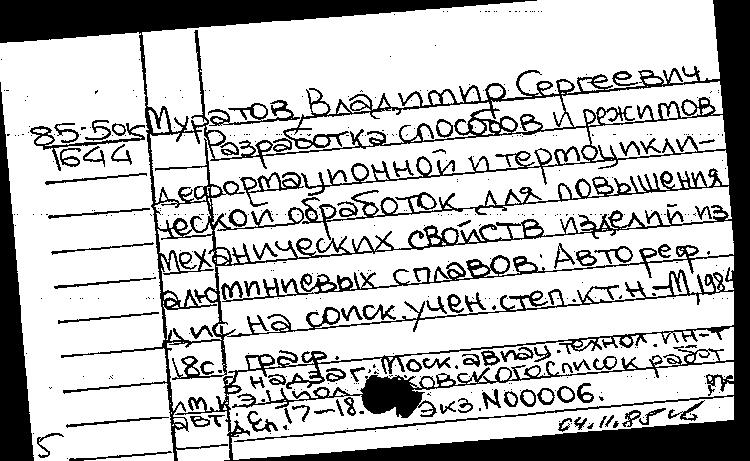 Муратов, Владимир Сергеевич.
85-50к
1644
Разработка способов и режимов
деформационной и термоцикли-
ческой обработок для повышения
механических свойств изделий из
алюминиевых сплавов: Автореф.
дис. на соиск. учен. степ. к.т.н. -М, 1984
18с., граф.
В надзаг.: Моск. авиац. технол. ин-т
им. К.Э. Циол ковского Список работ
авт.: с. 17-18. Экз. N00006.
04.11.85
5